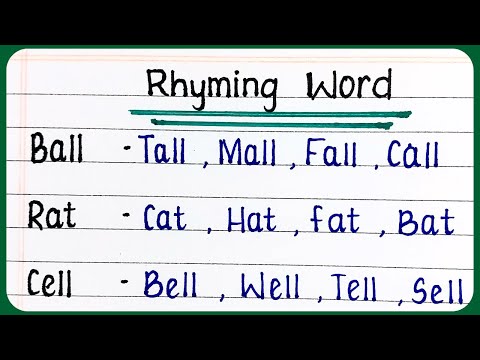 Rhyming Word
Ball - Tall , Mall , Fall , Call
Rat - Cat , Hat , fat , Bat
Cell - Bell , Well , Tell , Sell